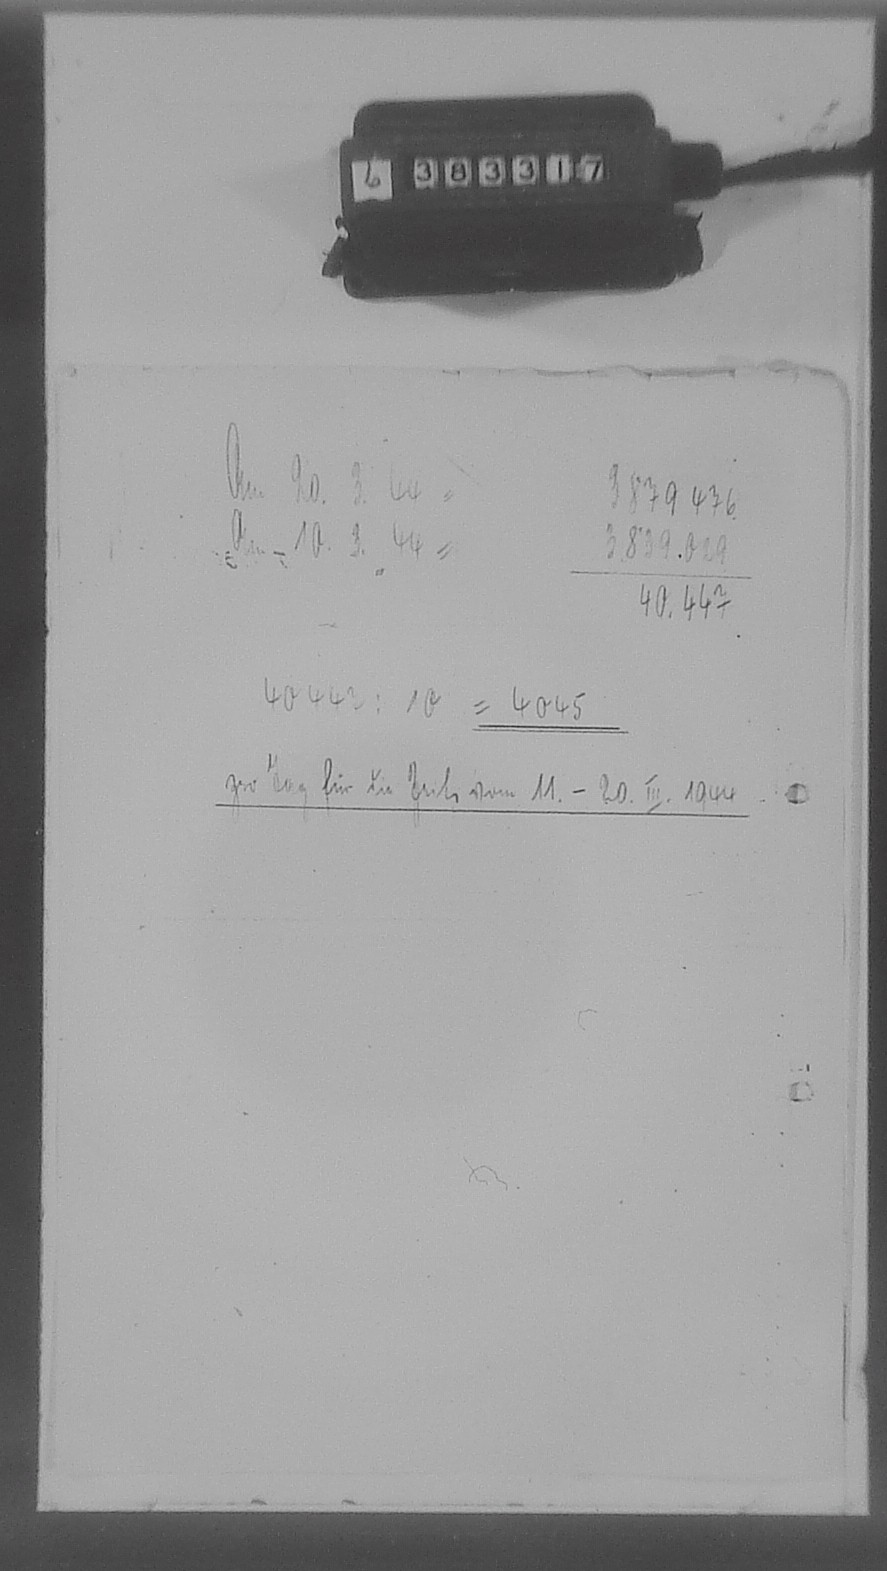 6 383317
Am 20. 3. 44 = 3879476
Am 10. 3. 44 = 3.839.029
40.447
40447 : 10 = 4045
pro Tag für die Zeit vom 11. - 20. III. 1944